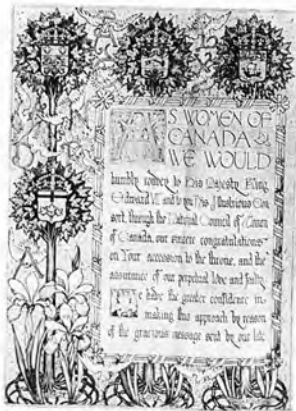 AS WOMEN OF
CANADA
WE WOULD
humbly convey to His Majesty King
Edward VII. and to you His Illustrious Con-
sort, through the National Council of Women
of Canada, our sincere congratulations
on Your accession to the throne, and the
assurance of our perpetual love and fealty
We have the greater confidence in
making this approach by reason
of the gracious message sent by our late